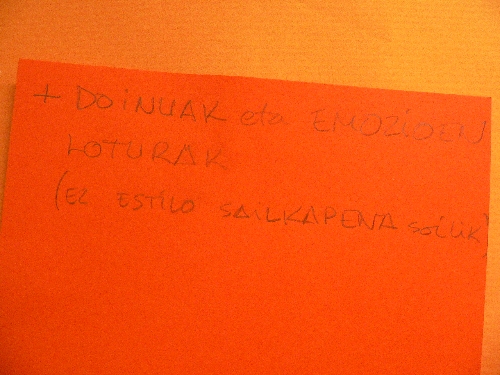 + DOINUAK eta EMOZIOEN
LOTURAK
(EZ ESTILO SAILKAPENA SOILIK)